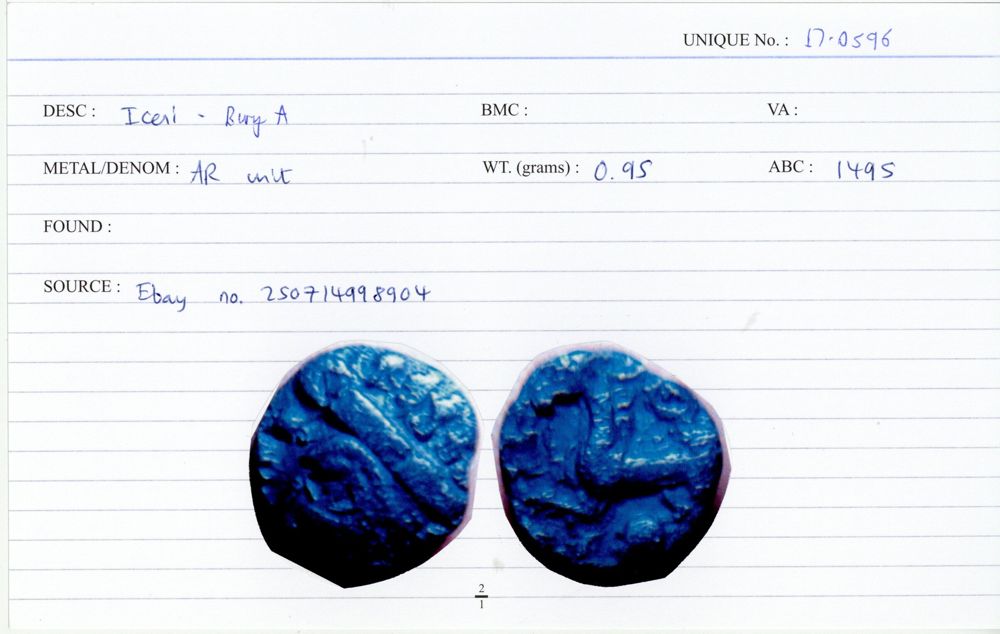 UNIQUE No. : 17.0596
DESC : Iceni - Bury A BMC : VA :
METAL/DENOM : AR unit WT. (grams) : 0.95 ABC : 1495
FOUND :
SOURCE : Ebay no. 250714998904
2
1